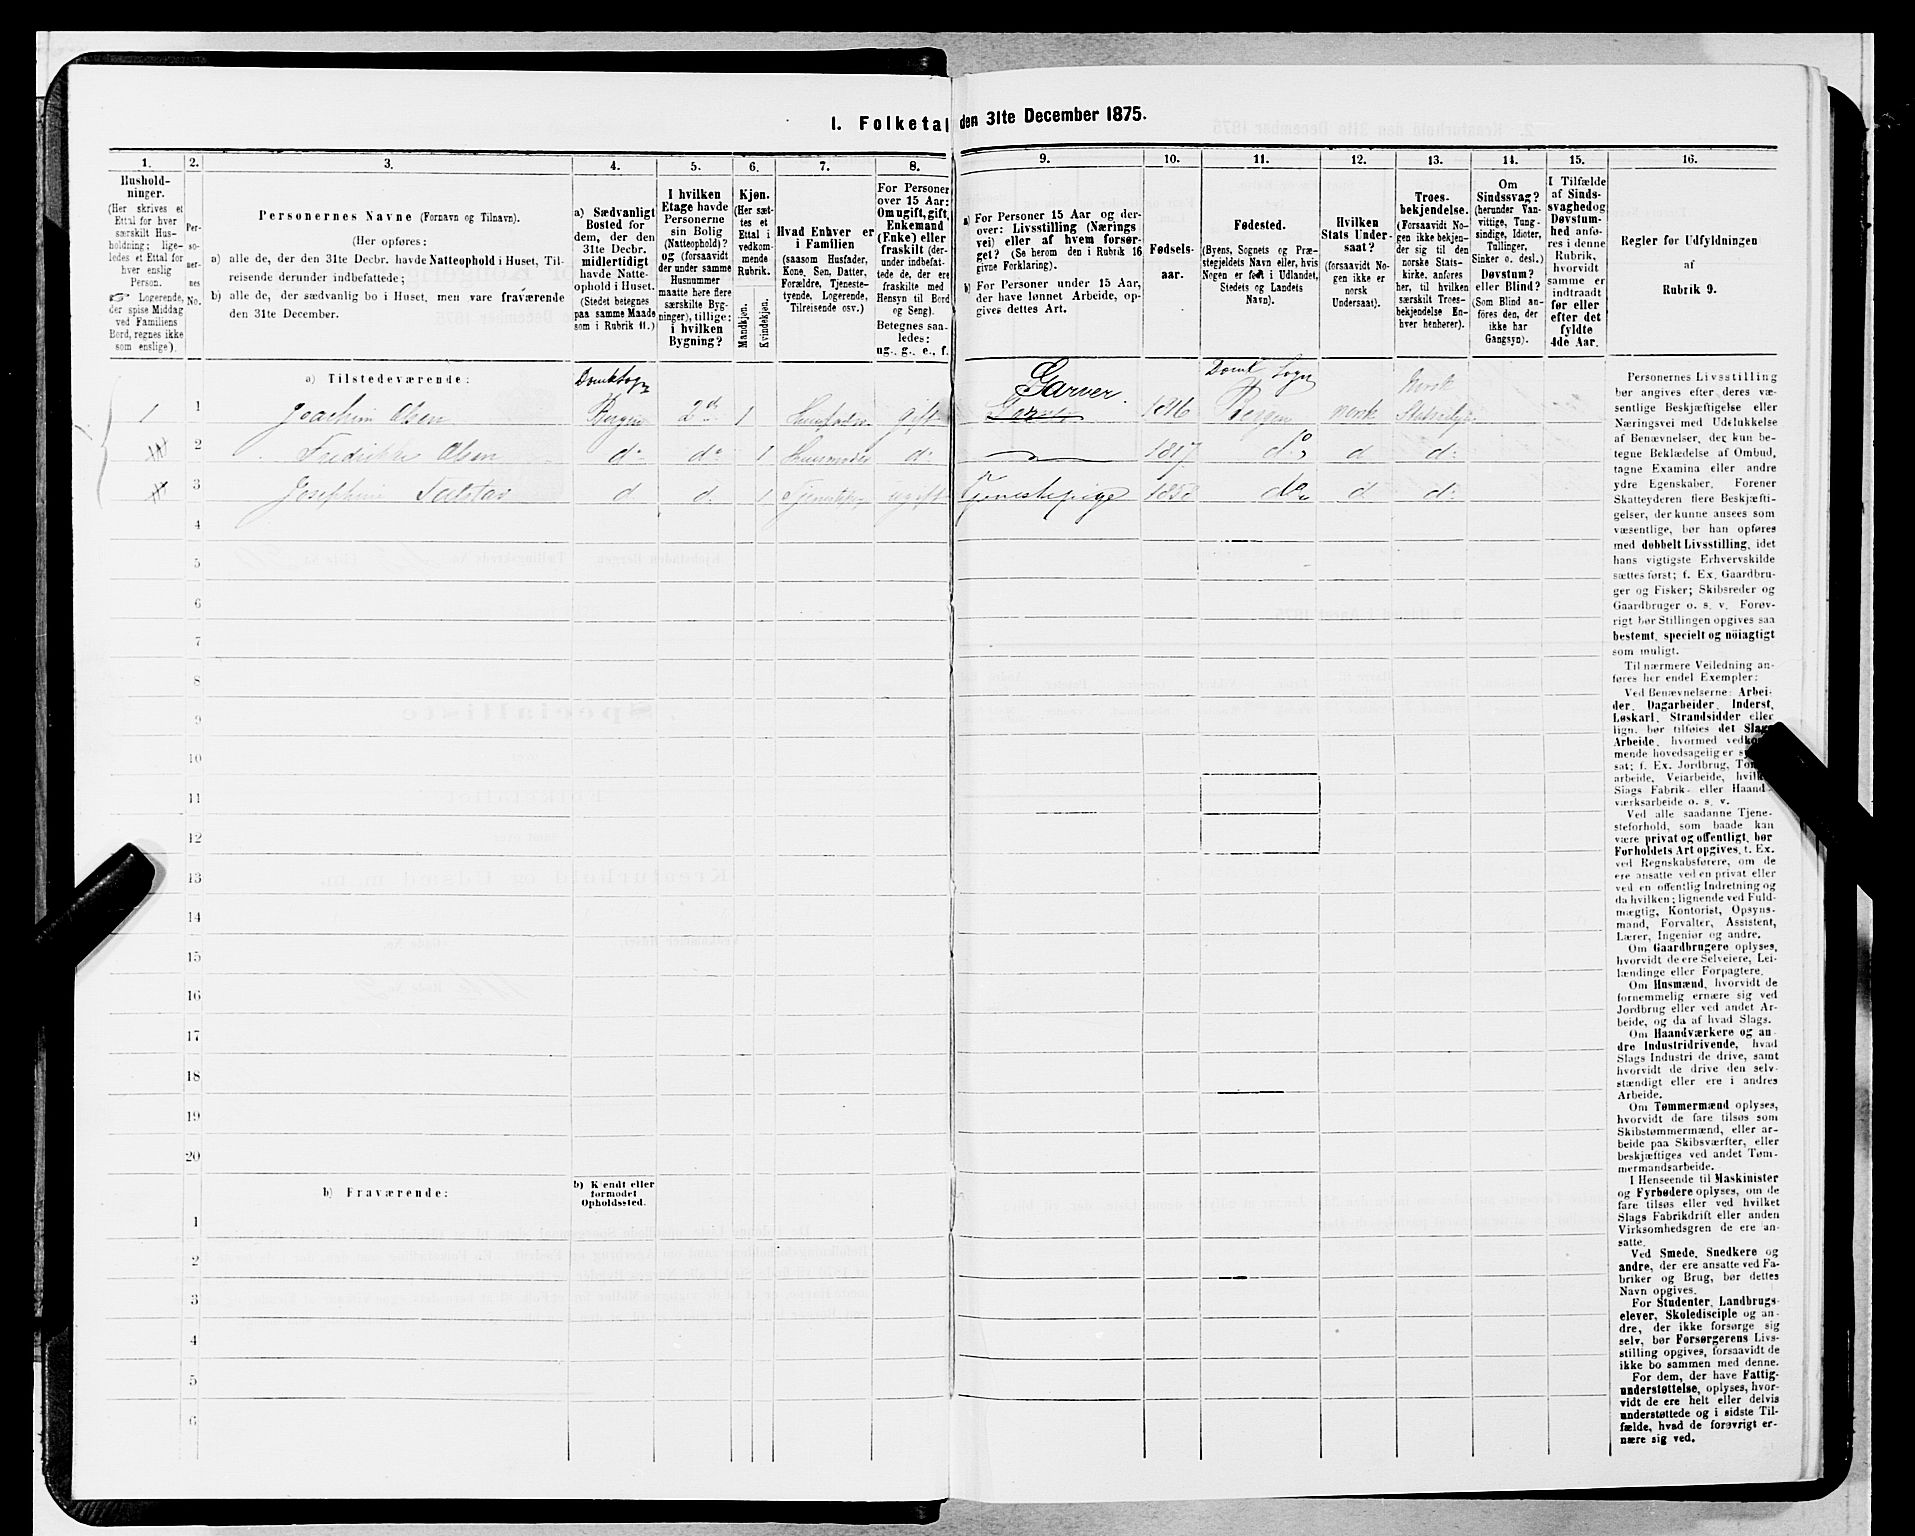 I. Folketal den 31te December 1875.
1.
2.
3.
4.
5.
6.
7.
8.
9.
10.
11.
12.
13.
14.
15.
16.
Hushold-
ninger.
(Her skrives et
Ettal for hver
særskilt Hus-
holdning; lige-
ledes et Ettal for
hver enslig
Person.
☞ Logerende,
der spise Middag
ved Familiens
Bord, regnes ikke
som enslige).
Per-
so-
ner-
nes
No.
Personernes Navne (Fornavn og Tilnavn).
(Her opføres:
a) alle de, der den 31te Decbr. havde Natteophold i Huset, Til-
reisende derunder indbefattede;
b) alle de, der sædvanlig bo i Huset, men vare fraværende
den 31te December.
a) Sædvanligt
Bosted for
dem, der den
31te Decbr.
midlertidigt
havde Natte-
ophold i Huset.
(Stedet betegnes
paa samme Maade
som i Rubrik 11.)
I hvilken
Etage havde
Personerne
sin Bolig
(Natteophold)?
og (forsaavidt
der under samme
Husnummer
maatte høre flere
særskilte Byg-
ninger), tillige:
i hvilken
Bygning?
Kjøn.
(Her sæt-
tes et
Ettal i
vedkom-
mende
Rubrik.
Mandkjøn.
Kvindekjøn.
Hvad Enhver er
i Familien
(saasom Husfader,
Kone, Søn, Datter,
Forældre, Tjeneste-
tyende, Logerende,
Tilreisende osv.)
For Personer
over 15 Aar:
Om ugift, gift,
Enkemand
(Enke) eller
fraskilt (der-
under indbefat-
tede de, der ere
fraskilte med
Hensyn til Bord
og Seng).
Betegnes saa-
ledes:
ug., g., e., f.
a) For Personer 15 Aar og der-
over: Livsstilling (Nærings
vei) eller af hvem forsør-
get? (Se herom den i Rubrik 16
givne Forklaring).
b) For Personer under 15 Aar,
der have lønnet Arbeide, op-
gives dettes Art.
Fødsels-
aar.
Fødested.
(Byens, Sognets og Præ-
stegjeldets Navn eller, hvis
Nogen er født i Udlandet,
Stedets og Landets
Navn).
Hvilken
Stats Under-
saat?
(forsaavidt No-
gen ikke er
norsk
Undersaat).
Troes-
bekjendelse.
(Forsaavidt No-
gen ikke bekjen-
der sig til den
norske Stats-
kirke, anføres
her, til hvilken
særskilt Troes-
bekjendelse En-
hver henhører).
Om
Sindssvag?
(herunder Van-
vittige, Tung-
sindige, Idioter,
Tullinger,
Sinker o. desl.)
Døvstum?
eller Blind?
(Som Blind an-
føres den, der
ikke har
Gangsyn).
I Tilfælde
af Sinds-
svaghed og
Døvstum-
hed anfø-
res i denne
Rubrik,
hvorvidt
samme er
indtraadt
før eller
efter det
fyldte
4de Aar.
Regler for Udfyldningen
af
Rubrik 9.
a) Tilstedeværende:
Domk Sogn
Garver.
Domk Sogn
Norsk
1 1 Joachim Olsen Bergen 2d 1 Huusfader gift 1816 Bergen norsk Statskirke
2 Fredrikke Olsen do do 1 Huusmoder do 1817 do d do
3 Josephine d d 1 ugift Tjenestepige 1858 do d do
4
5
6
7
8
9
10
11
12
13
14
15
16
17
18
19
20
b) Fraværende:
b) Kjendt eller
formodet
Opholdssted.
1
2
3
4
5
6
Personernes Livsstilling
bør angives efter deres væ-
sentlige Beskjæftigelse eller
Næringsvei med Udelukkelse
af Benævnelser, der kun be-
tegne Beklædelse af Ombud,
tagne Examina eller andre
ydre Egenskaber. Forener
Skatteyderen flere Beskjæfti-
gelser, der kunne ansees som
væsentlige, bør han opføres
med dobbelt Livsstilling, idet
hans vigtigste Erhvervskilde
sættes først; f. Ex. Gaardbru-
ger og Fisker; Skibsreder og
Gaardbruger o. s. v. Forøv-
rigt bør Stillingen opgives saa
bestemt, specielt og nöiagtigt
som muligt.
Til nærmere Veiledning an-
føres her endel Exempler:
Ved Benævnelserne: Arbei-
der, Dagarbeider, Inderst,
Løskarl, Strandsidder eller
lign. bør tilføies det Slags
Arbeide, hvormed vedkom-
mende hovedsagelig er syssel-
sat; f. Ex. Jordbrug, Tomte-
arbeide, Veiarbeide, hvilket
Slags Fabrik- eller Haand-
værksarbeide o. s. v.
Ved alle saadanne Tjene-
steforhold, som baade kan
være privat og offentligt, bør
Forholdets Art opgives, t. Ex.
ved Regnskabsførere, om de
ere ansatte ved en privat eller
ved en offentlig Indretning og
da hvilken; lignende ved Fuld-
mægtig, Kontorist, Opsyns-
mand, Forvalter, Assistent,
Lærer, Ingeniør og andre.
Om Gaardbrugere oplyses,
hvorvidt de ere Selveiere, Lei-
lændinge eller Forpagtere.
Om Husmænd, hvorvidt de
fornemmelig ernære sig ved
Jordbrug eller ved andet Ar-
beide, og da af hvad Slags.
Om Haandværkere og an-
dre Industridrivende, hvad
Slags Industri de drive, samt
hvorvidt de drive den selv-
stændigt eller ere i andres
Arbeide.
Om Tømmermænd oplyses,
hvorvidt de fare tilsøs som
Skibstømmermænd, eller ar-
beide paa Skibsværfter, eller
beskjæftiges ved andet Tøm-
mermandsarbeide.
I Henseende til Maskinister
og Fyrbødere oplyses, om de
fare tilsøs eller ved hvilket
Slags Fabrikdrift eller anden
Virksomhedsgren de ere an-
satte.
Ved Smede, Snedkere og
andre, der ere ansatte ved Fa-
briker og Brug, bør dettes
Navn opgives.
For Studenter, Landbrugs-
elever, Skoledisciple og an-
dre, der ikke forsørge sig
selv, bør Forsørgerens Livs-
stilling opgives, forsaavidt de
ikke bo sammen med denne.
For dem, der have Fattig-
understøttelse, oplyses, hvor-
vidt de ere helt eller delvis
understøttede og i sidste Til-
fælde, hvad de forøvrigt er-
nære sig ved.